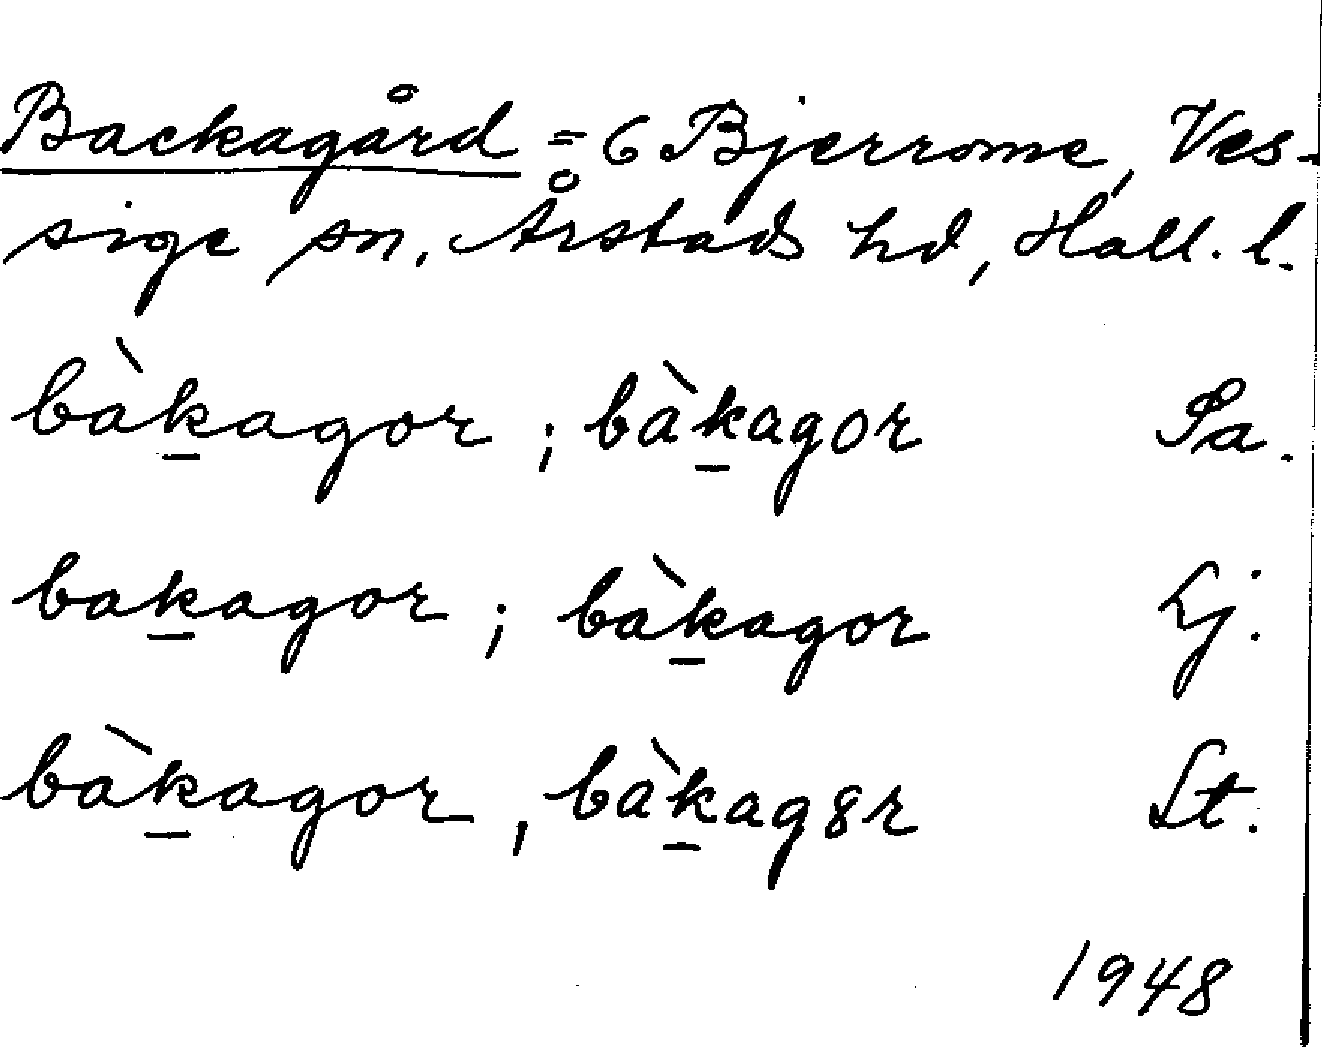 Backagård = 6 Bjerrome, Ves-
sige sn, Årstads hd, Hall. l.
bàk̠agor ; bàk̠agor Sa.
bak̠agor ; bàk̠agor Lj.
bàk̠agor , bàk̠ag8r St.
1948